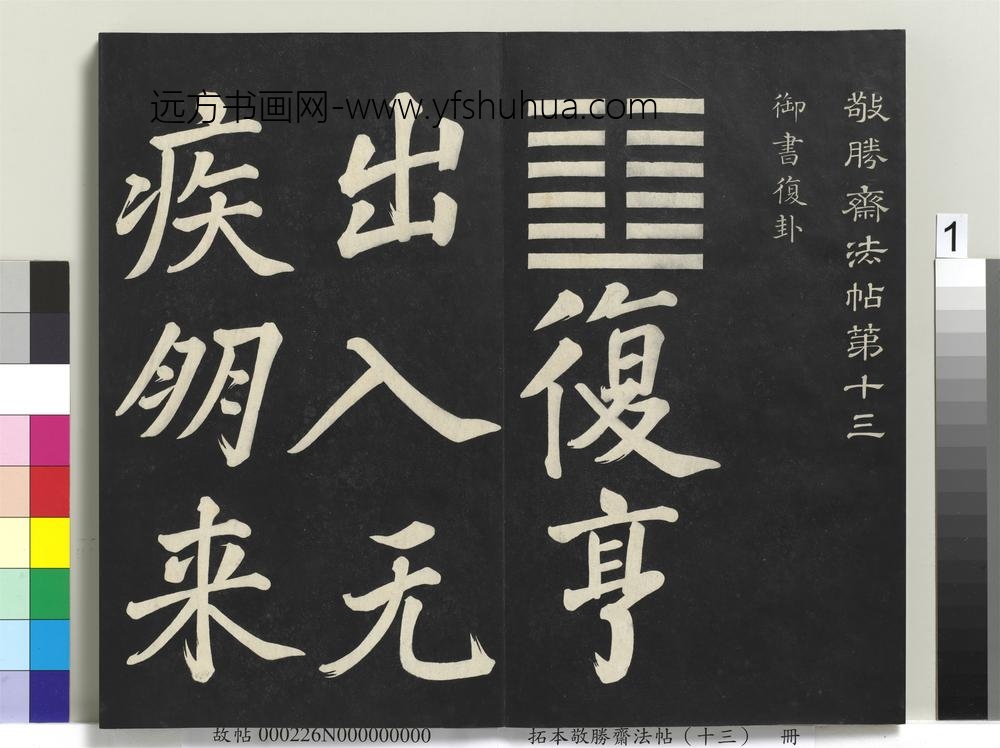 远方书画网-www.yfshuhua.com
敬勝齋法帖第十三
御書復卦
復亨
出入无
疾朋来
1
故帖 000226N000000000
拓本敬勝齋法帖（十三） 冊